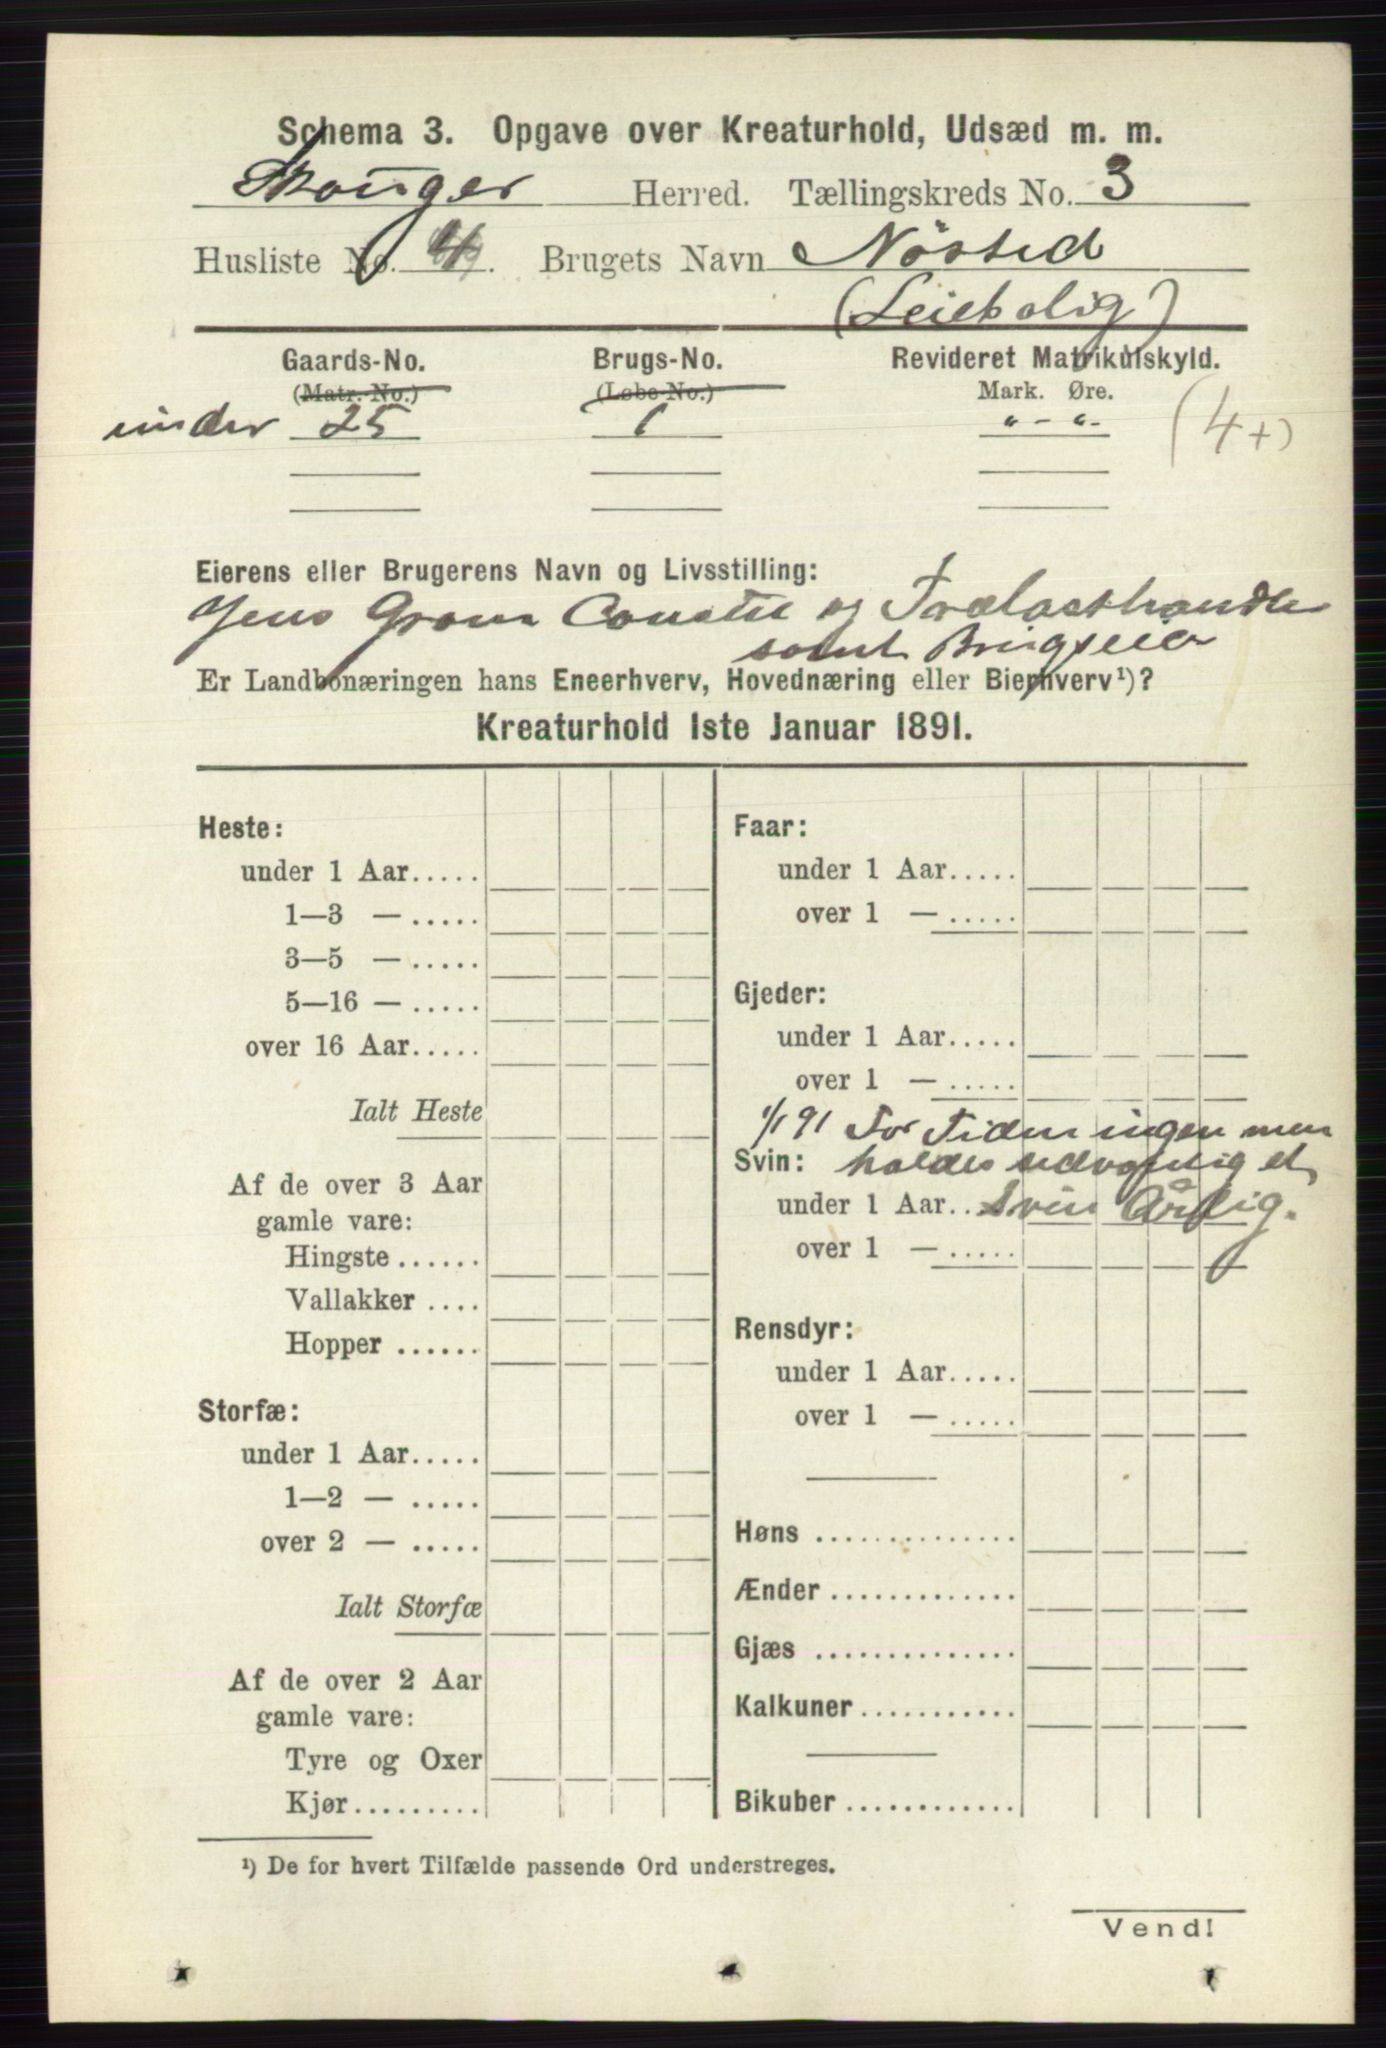 Schema 3. Opgave over Kreaturhold, Udsæd m. m.
Skouger Herred. Tællingskreds No. 3
Husliste No. 4. Brugets Navn Nösted
(Leiebolig)
Gaards-No. Brugs-No. Revideret Matrikulskyld.
(Matr.-No.) (Løbe-No.) Mark. Øre.
under 25 1 " - " - (4+)
Eierens eller Brugerens Navn og Livsstilling:
Jens Gram Consul og Trælasthandler
samt Brugseier
Er Landbonæringen hans Eneerhverv, Hovednæring eller Bierhverv¹)?
Kreaturhold 1ste Januar 1891.
Heste:
under 1 Aar.....
1—3 — .....
3—5 — .....
5—16 — .....
over 16 Aar.....
Ialt Heste
Af de over 3 Aar
gamle vare:
Hingste ......
Vallakker ....
Hopper ......
Storfæ:
under 1 Aar.....
1—2 — .....
over 2 — .....
Ialt Storfæ
Af de over 2 Aar
gamle vare:
Tyre og Oxer
Kjør.........
Faar:
under 1 Aar.....
over 1 — .....
Gjeder:
under 1 Aar.....
over 1 — .....
1/1 91 For Tiden ingen men
Svin: holdes et
under 1 Aar.. Svin Årlig.
over 1 — .....
Rensdyr:
under 1 Aar.....
over 1 — .....
Høns ..............
Ænder .............
Gjæs ..............
Kalkuner ...........
Bikuber ............
¹) De for hvert Tilfælde passende Ord understreges.
Vend!